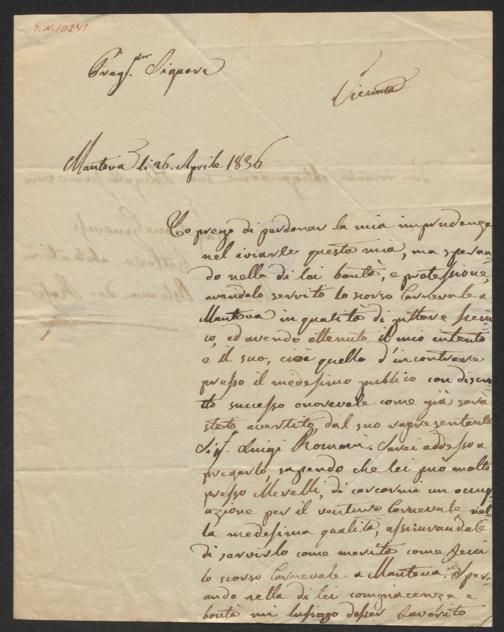 I.N. 10241
Preg.mo Signore
Vienna
Mantova li 26. Aprile 1836
La prego di perdonar la mia imprudenza
nel iviarle questa mia, ma speran-
do nella di lei bontà, e protessione,
avendolo servito lo scorso Carnevale a
Mantova in qualità di pittore sceni
co, ed avendo ottenuto il mio intento
e il suo, cioè quello d'incontrare
presso il medesimo publico con discre
tto successo onorevole come già sarà
stato avertito dal suo rapresentante
Sig. Luigi Romani. Sarei addesso a
pregarlo sapendo che lei può molto
presso Merelli, di cercarmi un occup
azione per il venturo Carnevale nel
la medesima qualità, assicurandole
di servirlo come merita come feci
lo scorso Carnevale a Mantova. Sper
ando nella di lei compiacenza e
bontà mi lusingo desser favorito